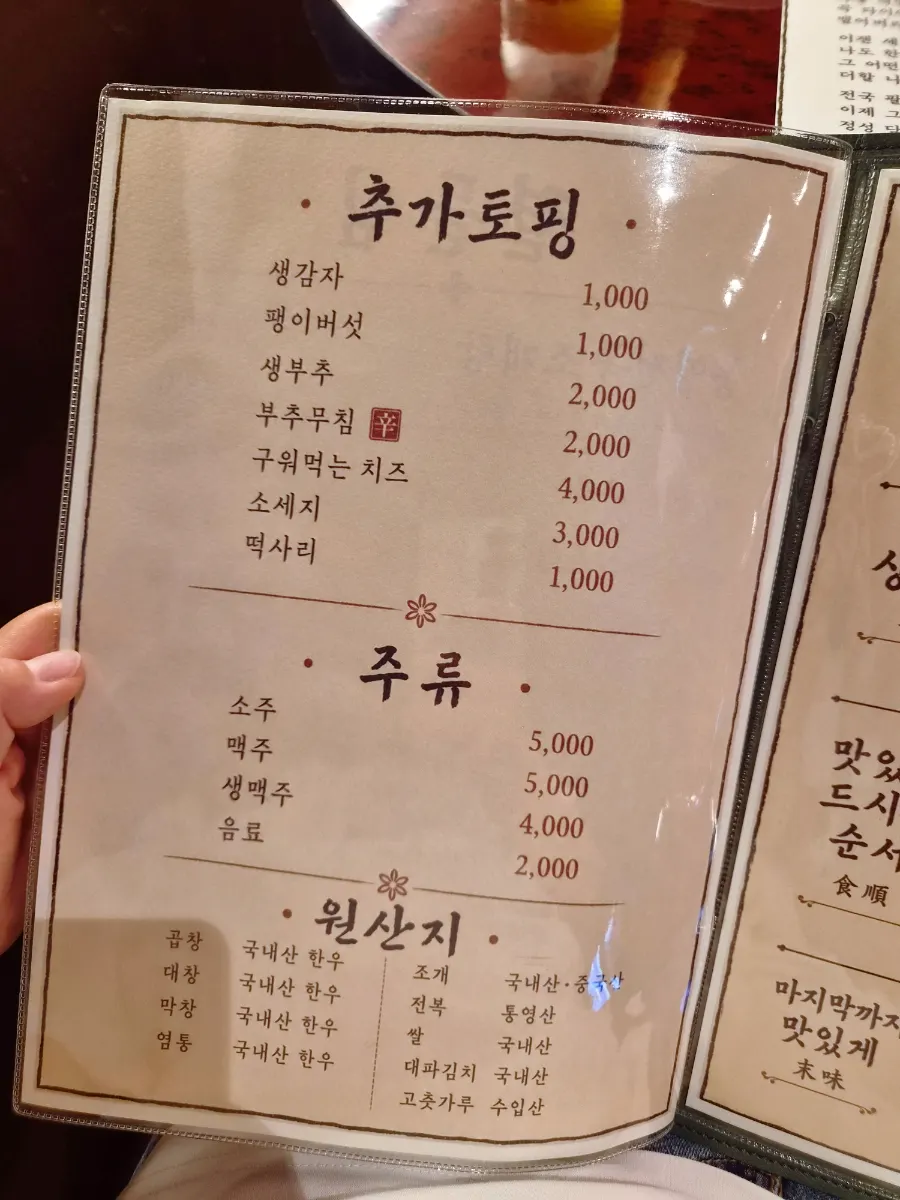 추가토핑
생감자 1,000
팽이버섯 1,000
생부추 2,000
부추무침 辛 2,000
구워먹는 치즈 4,000
소세지 3,000
떡사리 1,000
주류
소주 5,000
맥주 5,000
생맥주 4,000
음료 2,000
원산지
곱창 국내산 한우
대창 국내산 한우
막창 국내산 한우
염통 국내산 한우
조개 국내산·중국산
전복 통영산
쌀 국내산
대파김치 국내산
고춧가루 수입산
이젠
나도
그 어떤
더할
전국
이제
정성
드시
순서
食順
마지막까지
맛있게
末味